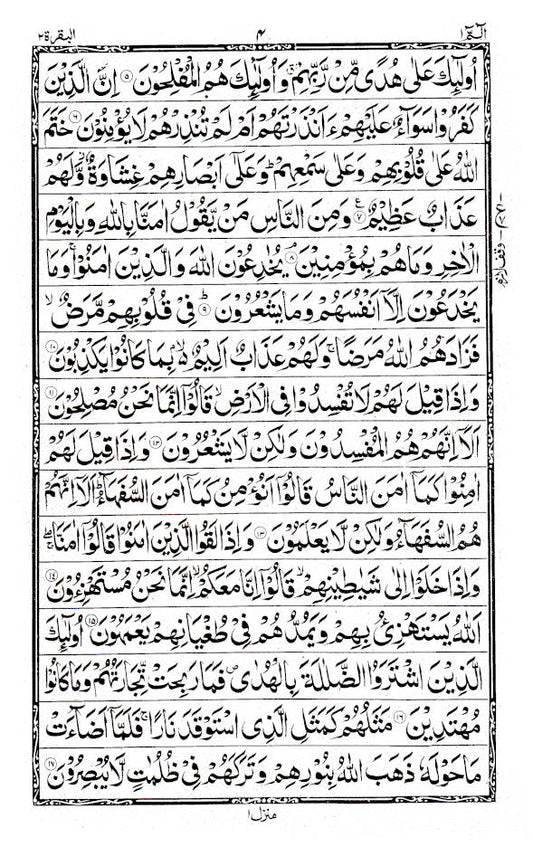 الٓمّٓ ١ ٤ البقرة ٢
اُولٰٓئِكَ عَلٰى هُدًى مِّنْ رَّبِّهِمْ ۙ وَاُولٰٓئِكَ هُمُ الْمُفْلِحُوْنَ ۝٥ اِنَّ الَّذِيْنَ
كَفَرُوْا سَوَآءٌ عَلَيْهِمْ ءَاَنْذَرْتَهُمْ اَمْ لَمْ تُنْذِرْهُمْ لَا يُؤْمِنُوْنَ ۝٦ خَتَمَ
اللّٰهُ عَلٰى قُلُوْبِهِمْ وَعَلٰى سَمْعِهِمْ ؕ وَعَلٰٓى اَبْصَارِهِمْ غِشَاوَةٌ ؗ وَّلَهُمْ
عَذَابٌ عَظِيْمٌ ۝٧ ع وَمِنَ النَّاسِ مَنْ يَّقُوْلُ اٰمَنَّا بِاللّٰهِ وَبِالْيَوْمِ
الْاٰخِرِ وَمَا هُمْ بِمُؤْمِنِيْنَ ۘ۝٨ يُخٰدِعُوْنَ اللّٰهَ وَالَّذِيْنَ اٰمَنُوْا ۚ وَمَا
يَخْدَعُوْنَ اِلَّاۤ اَنْفُسَهُمْ وَمَا يَشْعُرُوْنَ ؕ۝٩ فِيْ قُلُوْبِهِمْ مَّرَضٌ ۙ
فَزَادَهُمُ اللّٰهُ مَرَضًا ۚ وَلَهُمْ عَذَابٌ اَلِيْمٌ ۙ۬ بِمَا كَانُوْا يَكْذِبُوْنَ ۝١٠
وَاِذَا قِيْلَ لَهُمْ لَا تُفْسِدُوْا فِى الْاَرْضِ ۙ قَالُوْٓا اِنَّمَا نَحْنُ مُصْلِحُوْنَ ۝١١
اَلَاۤ اِنَّهُمْ هُمُ الْمُفْسِدُوْنَ وَلٰكِنْ لَّا يَشْعُرُوْنَ ۝١٢ وَاِذَا قِيْلَ لَهُمْ
اٰمِنُوْا كَمَاۤ اٰمَنَ النَّاسُ قَالُوْٓا اَنُؤْمِنُ كَمَاۤ اٰمَنَ السُّفَهَآءُ ؕ اَلَاۤ اِنَّهُمْ
هُمُ السُّفَهَآءُ وَلٰكِنْ لَّا يَعْلَمُوْنَ ۝١٣ وَاِذَا لَقُوا الَّذِيْنَ اٰمَنُوْا قَالُوْٓا اٰمَنَّا ۚۖ
وَاِذَا خَلَوْا اِلٰى شَيٰطِيْنِهِمْ ۙ قَالُوْٓا اِنَّا مَعَكُمْ ۙ اِنَّمَا نَحْنُ مُسْتَهْزِءُوْنَ ۝١٤
اَللّٰهُ يَسْتَهْزِئُ بِهِمْ وَيَمُدُّهُمْ فِيْ طُغْيَانِهِمْ يَعْمَهُوْنَ ۝١٥ اُولٰٓئِكَ
الَّذِيْنَ اشْتَرَوُا الضَّلٰلَةَ بِالْهُدٰى ۪ فَمَا رَبِحَتْ تِّجَارَتُهُمْ وَمَا كَانُوْا
مُهْتَدِيْنَ ۝١٦ مَثَلُهُمْ كَمَثَلِ الَّذِى اسْتَوْقَدَ نَارًا ۚ فَلَمَّاۤ اَضَآءَتْ
مَا حَوْلَهٗ ذَهَبَ اللّٰهُ بِنُوْرِهِمْ وَتَرَكَهُمْ فِيْ ظُلُمٰتٍ لَّا يُبْصِرُوْنَ ۝١٧
وقف لازم
منزل ١